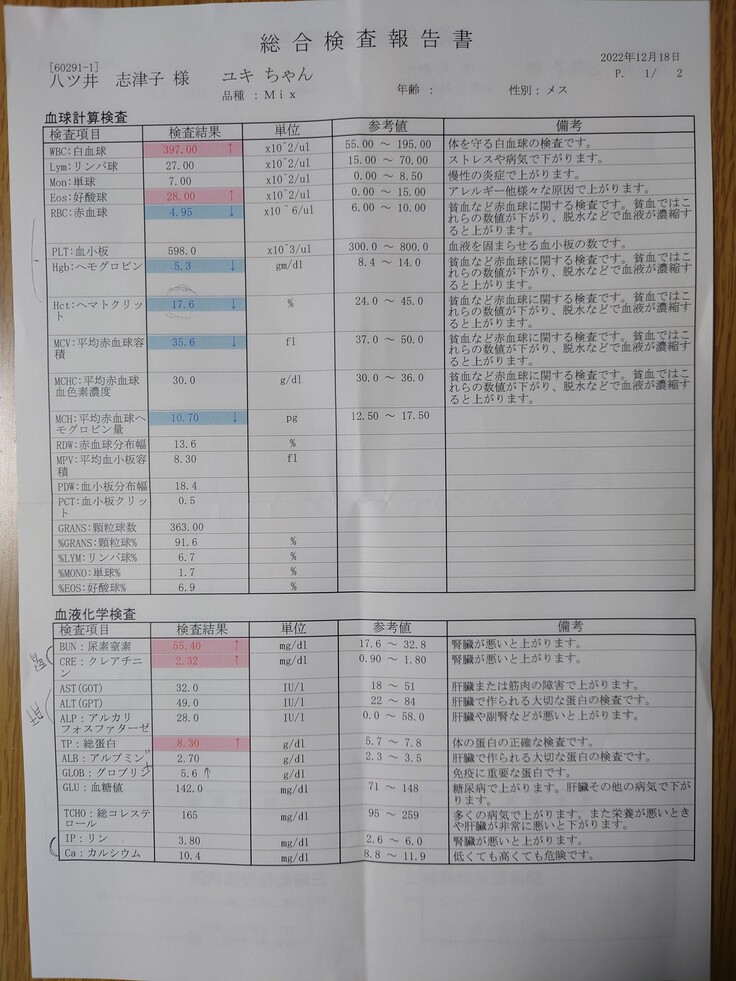 総合検査報告書
2022年12月18日
[60291-1]
八ツ井 志津子 様 ユキ ちゃん
P. 1/ 2
品種 : Mix 年齢 : 性別 : メス
血球計算検査
検査項目 検査結果 単位 参考値 備考
WBC:白血球 397.00 ↑ x10^2/ul 55.00 ～ 195.00 体を守る白血球の検査です。
Lym:リンパ球 27.00 x10^2/ul 15.00 ～ 70.00 ストレスや病気で下がります。
Mon:単球 7.00 x10^2/ul 0.00 ～ 8.50 慢性の炎症で上がります。
Eos:好酸球 28.00 ↑ x10^2/ul 0.00 ～ 15.00 アレルギー他様々な原因で上がります。
RBC:赤血球 4.95 ↓ x10^6/ul 6.00 ～ 10.00 貧血など赤血球に関する検査です。貧血ではこ
れらの数値が下がり、脱水などで血液が濃縮す
ると上がります。
PLT:血小板 598.0 x10^3/ul 300.0 ～ 800.0 血液を固まらせる血小板の数です。
Hgb:ヘモグロビン 5.3 ↓ gm/dl 8.4 ～ 14.0 貧血など赤血球に関する検査です。貧血ではこ
れらの数値が下がり、脱水などで血液が濃縮す
ると上がります。
Hct:ヘマトクリッ 17.6 ↓ % 24.0 ～ 45.0 貧血など赤血球に関する検査です。貧血ではこ
ト れらの数値が下がり、脱水などで血液が濃縮す
ると上がります。
MCV:平均赤血球容 35.6 ↓ fl 37.0 ～ 50.0 貧血など赤血球に関する検査です。貧血ではこ
積 れらの数値が下がり、脱水などで血液が濃縮す
ると上がります。
MCHC:平均赤血球 30.0 g/dl 30.0 ～ 36.0 貧血など赤血球に関する検査です。貧血ではこ
血色素濃度 れらの数値が下がり、脱水などで血液が濃縮す
ると上がります。
MCH:平均赤血球ヘ 10.70 ↓ pg 12.50 ～ 17.50
モグロビン量
RDW:赤血球分布幅 13.6 %
MPV:平均血小板容 8.30 fl
積
PDW:血小板分布幅 18.4
PCT:血小板クリッ 0.5
ト
GRANS:顆粒球数 363.00
%GRANS:顆粒球% 91.6 %
%LYM:リンパ球% 6.7 %
%MONO:単球% 1.7 %
%EOS:好酸球% 6.9 %
血液化学検査
検査項目 検査結果 単位 参考値 備考
BUN:尿素窒素 55.40 ↑ mg/dl 17.6 ～ 32.8 腎臓が悪いと上がります。
CRE:クレアチニ 2.32 ↑ mg/dl 0.90 ～ 1.80 腎臓が悪いと上がります。
ン
AST(GOT) 32.0 IU/l 18 ～ 51 肝臓または筋肉の障害で上がります。
ALT(GPT) 49.0 IU/l 22 ～ 84 肝臓で作られる大切な蛋白の検査です。
ALP:アルカリ 28.0 IU/l 0.0 ～ 58.0 肝臓や副腎などが悪いと上がります。
フォスファターゼ
TP:総蛋白 8.30 ↑ g/dl 5.7 ～ 7.8 体の蛋白の正確な検査です。
ALB:アルブミン 2.70 g/dl 2.3 ～ 3.5 肝臓で作られる大切な蛋白の検査です。
GLOB:グロブリン 5.6 ↑ g/dl 免疫に重要な蛋白です。
GLU:血糖値 142.0 mg/dl 71 ～ 148 糖尿病で上がります。肝臓その他の病気で下が
ります。
TCHO:総コレステ 165 mg/dl 95 ～ 259 多くの病気で上がります。また栄養が悪いとき
ロール や肝臓が非常に悪いと下がります。
IP:リン 3.80 mg/dl 2.6 ～ 6.0 腎臓が悪いと上がります。
Ca:カルシウム 10.4 mg/dl 8.8 ～ 11.9 低くても高くても危険です。
腎
肝